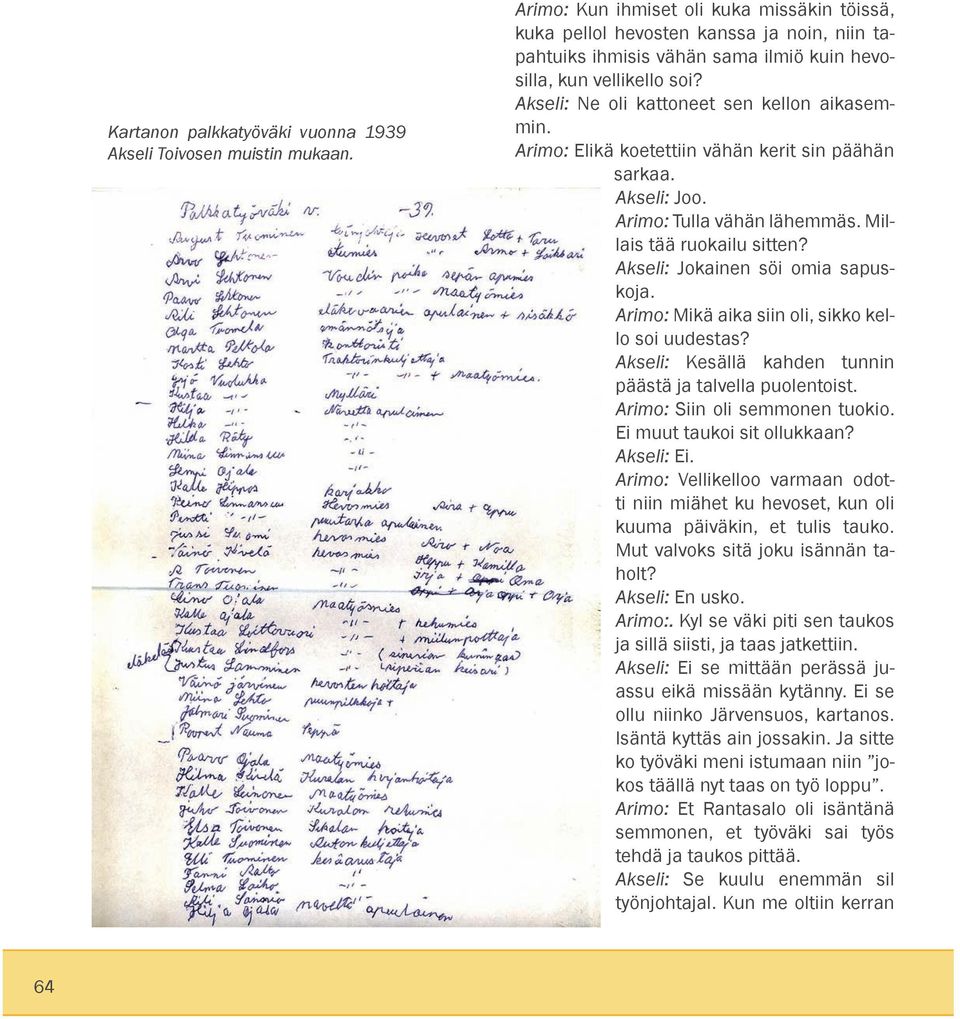 Kartanon palkkatyöväki vuonna 1939
Akseli Toivosen muistin mukaan.
Palkkatyöväki v. -39.
August Tuominen työnjohtaja hevoset Lotte + Taru
Arvo Lehtonen etumies -"- Armo + Loikkari
Arvi Lehtonen Voudin poika sepän apumies
Paavo Lehtonen -"- -"- Maatyömies
Aili Lehtonen eläkevaarien apulainen + sisäkkö
Olga Tuomela emännöitsijä
Martta Pelkola konttoristi
Kosti Lehto Traktorinkuljettaja
Yrjö Vuolukka -"- -"- + Maatyömies.
Kustaa -"- Mylläri
Hilja -"- Navetta apulainen
Helka -"- -"-
Hilda Räty -"-
Miina Linnansuu -"-
Lempi Ojala -"-
Kalle Hippos karjakko
Reino Linnansuu Hevosmies Aira + Eppu
Pentti -"- puutarha apulainen
Jussi Suomi hevosmies Airo + Noa
Väinö Kivelä hevosmies Heppu + Kamilla
A Toivonen -"- Irja + Oma
Frans Tuominen -"- + Orja
Eino Ojala
Kalle Ojala maatyömies
Kustaa Loittovuori -"- + rehumies
eläkeläis Kustaa Lindfors -"- + miilunpolttaja
Justus Lamminen -"- (siperian keisari)
Väinö Järvinen hevosten hoitaja
Miina Lehto puunpilkkoja +
Jalmari Suominen
Roopert Nauma Seppä
Paavo Ojala maatyömies
Hilma Kivelä Kuralan karjanhoitaja
Kalle Leinonen Maatyömies
Juho Toivonen Kuralan rehumies
Elsa Toivonen Sikalan hoitaja
Kalle Suominen Auton kuljettaja
Elli Tuominen kesäarustaja
Fanni Aalto -"-
Selma Laiho -"-
Aili Sannio -"-
Hilja Ojala navetta apulainen
Arimo: Kun ihmiset oli kuka missäkin töissä,
kuka pellol hevosten kanssa ja noin, niin ta-
pahtuiks ihmisis vähän sama ilmiö kuin hevo-
silla, kun vellikello soi?
Akseli: Ne oli kattoneet sen kellon aikasem-
min.
Arimo: Elikä koetettiin vähän kerit sin päähän
sarkaa.
Akseli: Joo.
Arimo: Tulla vähän lähemmäs. Mil-
lais tää ruokailu sitten?
Akseli: Jokainen söi omia sapus-
koja.
Arimo: Mikä aika siin oli, sikko kel-
lo soi uudestas?
Akseli: Kesällä kahden tunnin
päästä ja talvella puolentoist.
Arimo: Siin oli semmonen tuokio.
Ei muut taukoi sit ollukkaan?
Akseli: Ei.
Arimo: Vellikelloo varmaan odot-
ti niin miähet ku hevoset, kun oli
kuuma päiväkin, et tulis tauko.
Mut valvoks sitä joku isännän ta-
holt?
Akseli: En usko.
Arimo:. Kyl se väki piti sen taukos
ja sillä siisti, ja taas jatkettiin.
Akseli: Ei se mittään perässä ju-
assu eikä missään kytänny. Ei se
ollu niinko Järvensuos, kartanos.
Isäntä kyttäs ain jossakin. Ja sitte
ko työväki meni istumaan niin ”jo-
kos täällä nyt taas on työ loppu”.
Arimo: Et Rantasalo oli isäntänä
semmonen, et työväki sai työs
tehdä ja taukos pittää.
Akseli: Se kuulu enemmän sil
työnjohtajal. Kun me oltiin kerran
64